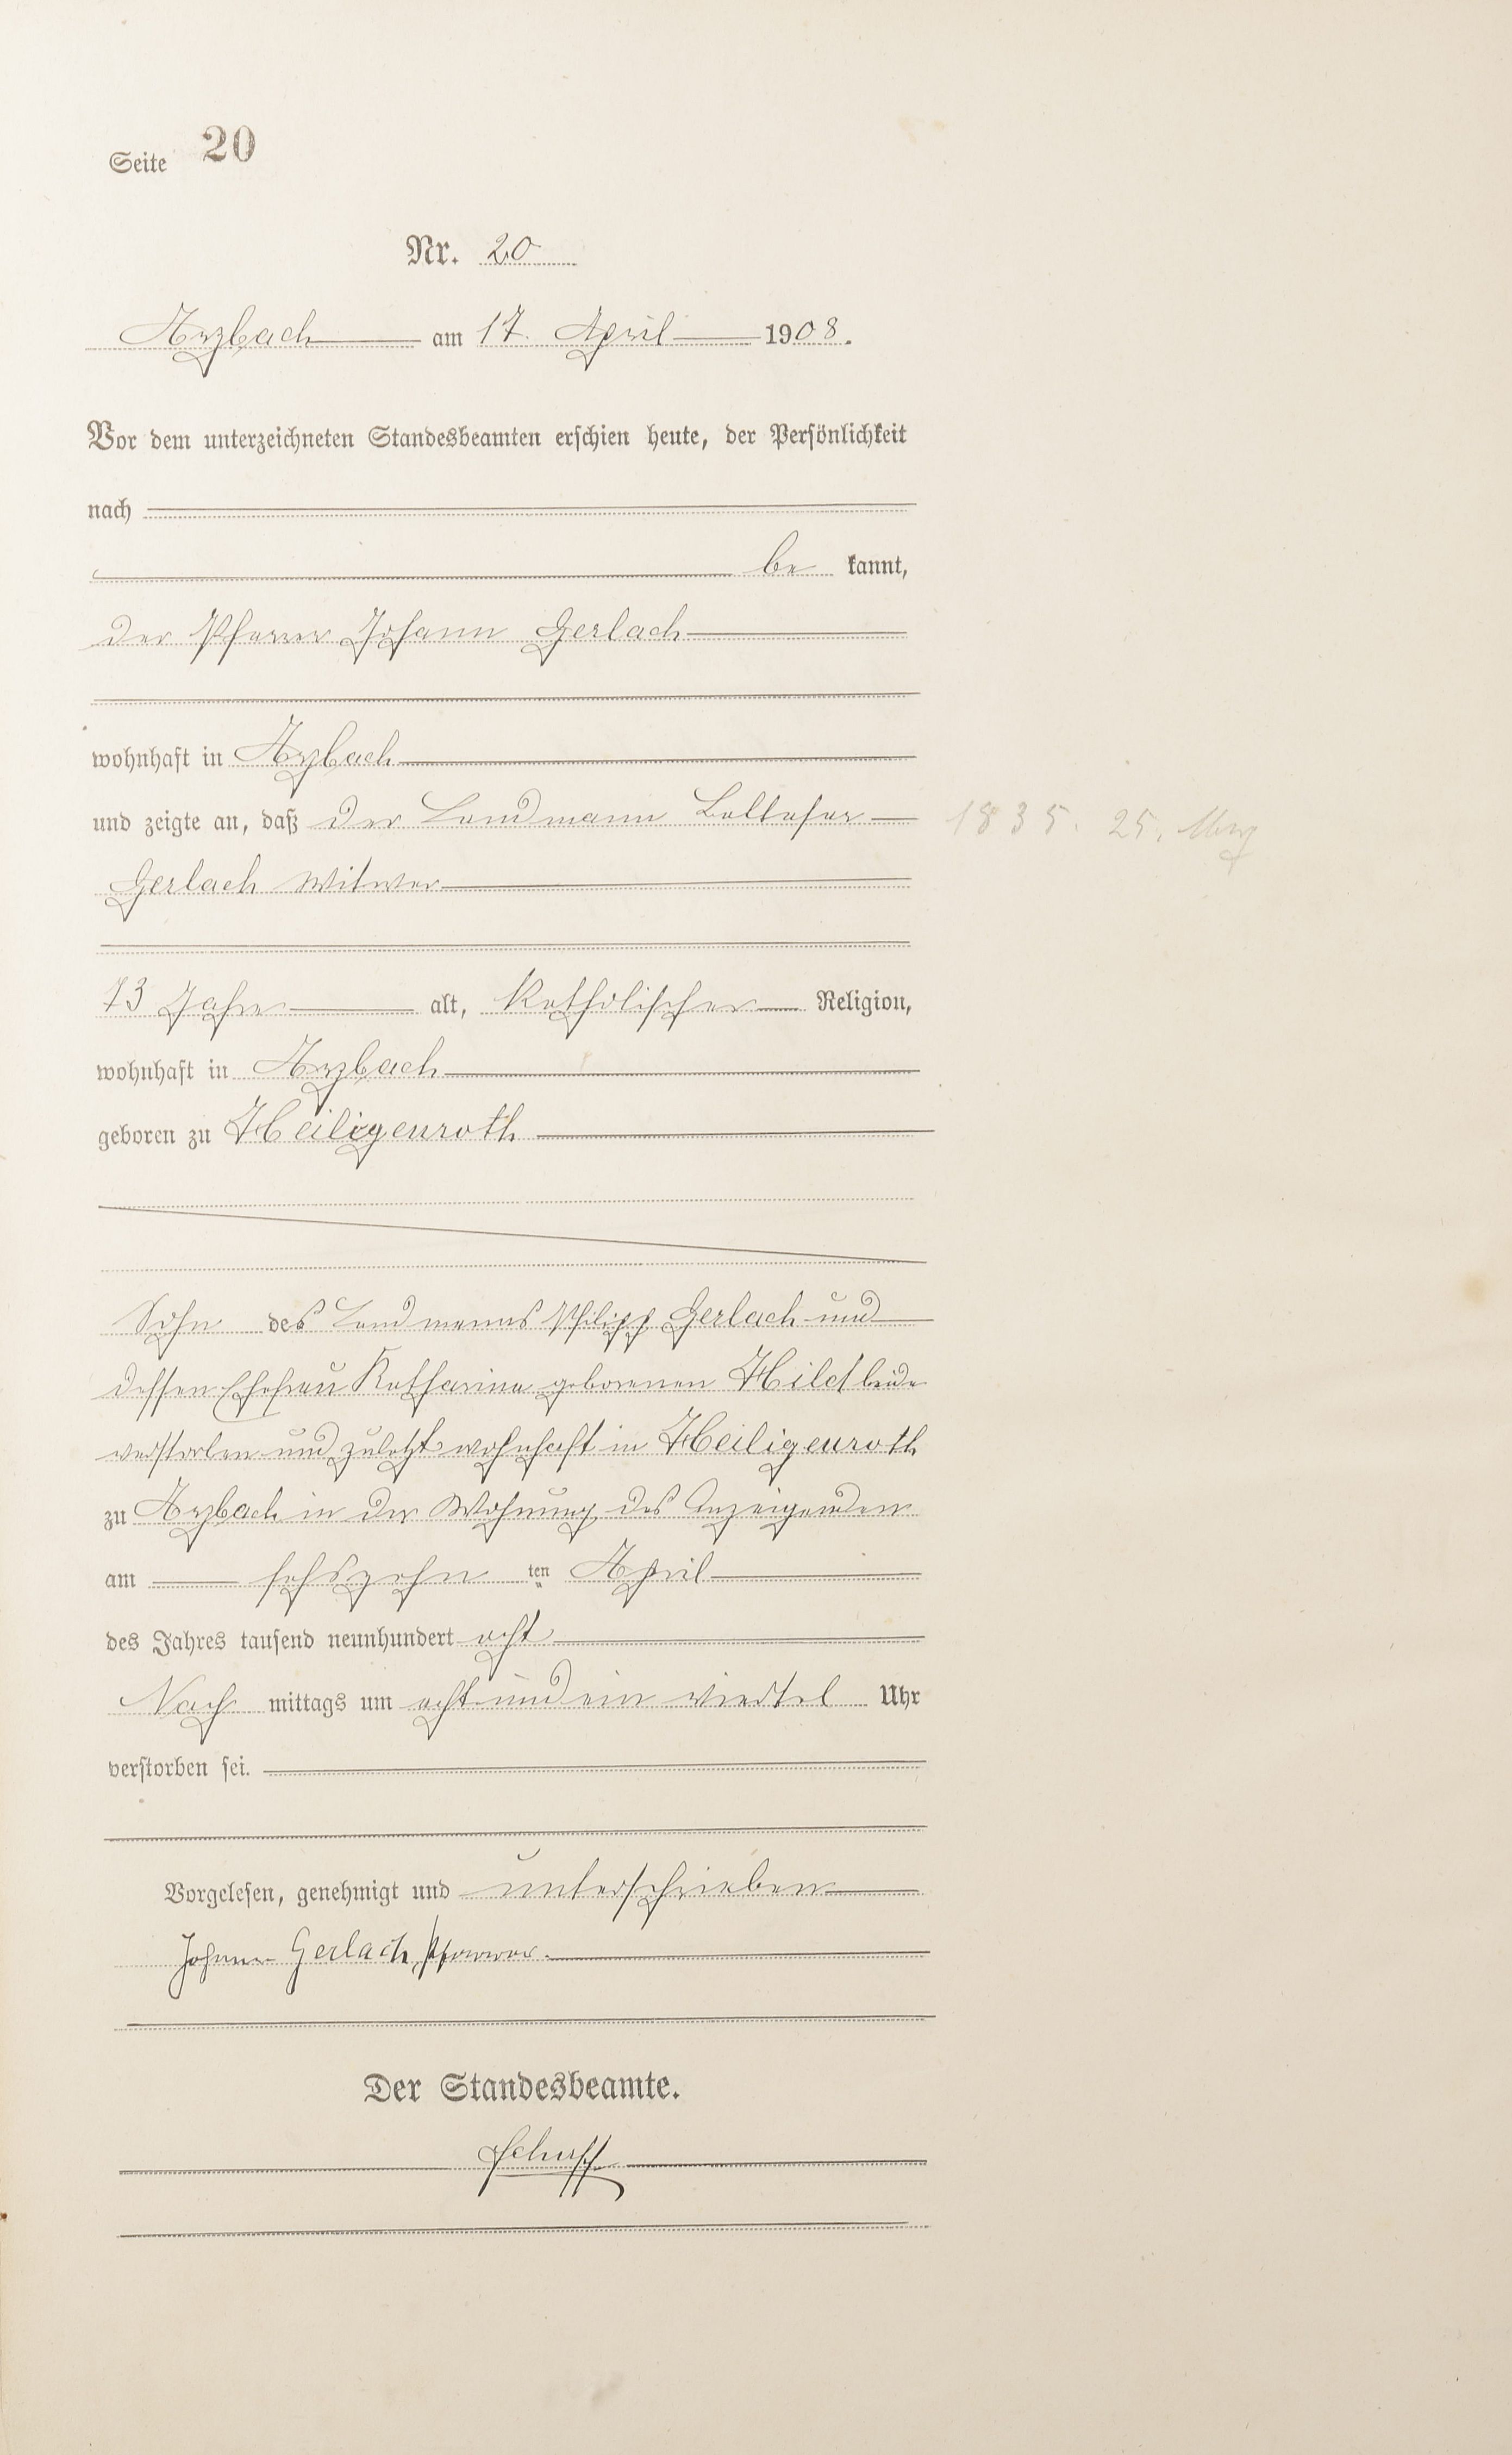 Seite 20
Nr. 20
Arzbach am 17. April 1908.
Vor dem unterzeichneten Standesbeamten erschien heute, der Persönlichkeit
nach
be kannt,
der Pfarrer Johann Gerlach
wohnhaft in Arzbach
und zeigte an, daß der Landmann Baltasar
1835. 25. März
Gerlach Witwer
73 Jahre alt, Katholischer Religion,
wohnhaft in Arzbach
geboren zu Heiligenroth
Sohn des Landmanns Philipp Gerlach und
dessen Ehefrau Katharina geborenen Hild beide
verstorben und zuletzt wohnhaft in Heiligenroth
zu Arzbach in der Wohnung des Anzeigenden
am sechszehn ten April
des Jahres tausend neunhundert acht
Nach mittags um acht und ein viertel Uhr
verstorben sei.
Vorgelesen, genehmigt und unterschrieben
Johann Gerlach, Pfarrer.
Der Standesbeamte.